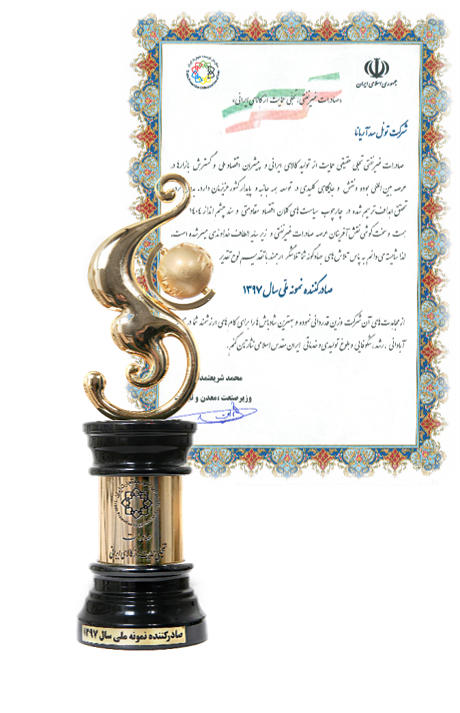 جمهوری اسلامی ایران
«صادرات غیرنفتی، تجلی حمایت از کالای ایرانی»
شرکت تونل سد آریانا
صادرات غیرنفتی تجلی حقیقی حمایت از تولید کالای ایرانی و پیشران اقتصاد ملی و گسترش بازارها در
عرصه بین المللی بوده و نقش و جایگاهی کلیدی در توسعه همه جانبه و پایدار کشور عزیزمان دارد.
تحقق اهداف ترسیم شده در چارچوب سیاست‌های کلان اقتصاد مقاومتی و سند چشم انداز ۱۴۰۴
همت و سخت کوشی نقش آفرینان عرصه صادرات غیرنفتی و زیر سایه الطاف خداوندی میسر شده است.
لذا شایسته می‌دانم به پاس تلاش‌های
لوح تقدیر
صادرکننده نمونه ملّی سال ۱۳۹۷
از مجاهدت‌های آن شرکت وزین قدردانی نموده و بهترین شادباش‌ها را برای گام‌های ارزشمند شما در
آبادانی، رشد، شکوفایی و بلوغ تولیدی و خدماتی ایران مقدس اسلامی نثارتان کنم.
محمد شریعتمد
وزیر صنعت، معدن و
حمایت از کالای ایرانی
صادرکننده نمونه ملی سال ۱۳۹۷